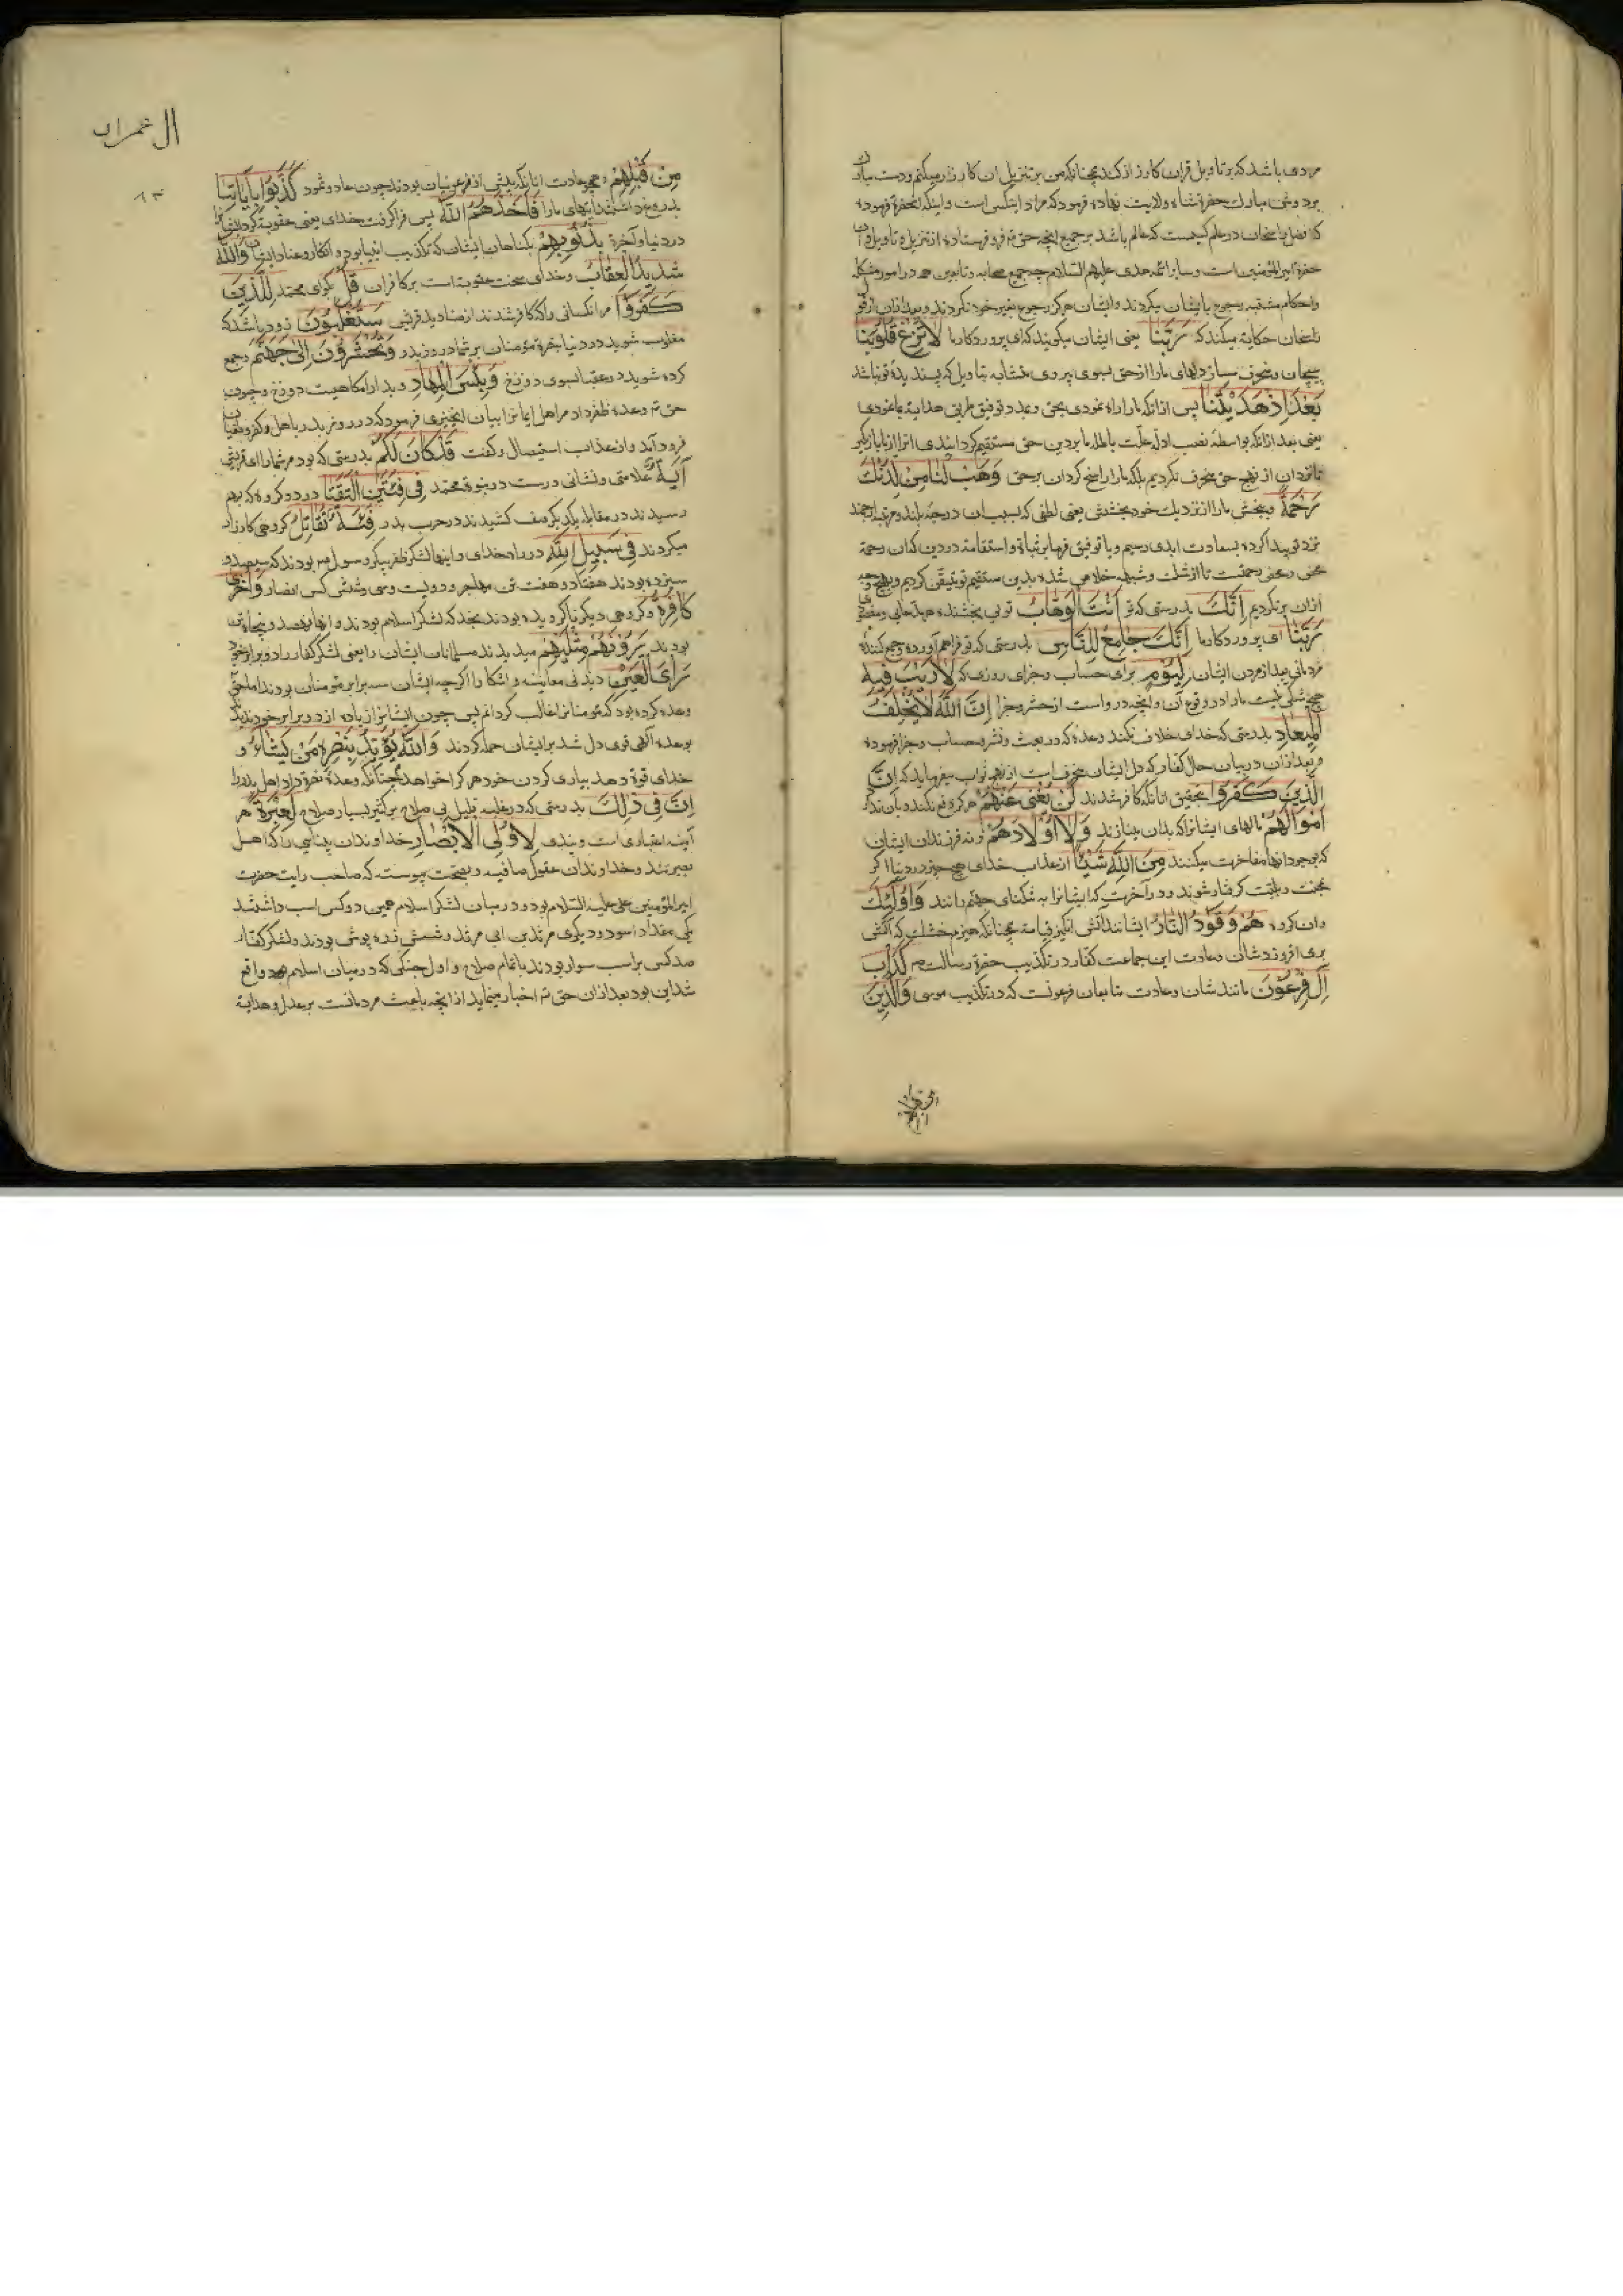 مردی باشد که بر تاویل قران کارزار کند چنانکه من بر تنزیل ان کارزار میکنم و دست مبارک
بر دوش مبارک حضرة شاه ولایت نهاده فرمود که مراد اینکس است و اینکه انحضرة فرموده
که افضل راسخان در علم کیست که عالم باشد بر جمیع انچه حق تع فرو فرستاده از تنزیل و تاویل
حضرة امیرالمؤمنین است و سایر ائمه هدی علیهم السلام چه جمیع صحابه و تابعین همه در امور مشکله
و احکام مشتبه رجوع بایشان میکردند و ایشان هرگز رجوع بغیر خود نکردند و بعد ازان از قول
راسخان حکایة میکند که رَبَّنَا یعنی ایشان میکویند که ای پروردکار ما لَا تُزِغْ قُلُوبَنَا
مپیچان و منحرف مساز دلهای ما را از حق بسوی پیروی متشابه بتاویل که پسندیدهٔ تو نباشد
بَعْدَ اِذْ هَدَیْتَنَا پس ازانکه ما را راه نمودی بحق و بمدد توفیق طریق هدایة بما نمودی
یعنی بعد ازانکه بواسطهٔ نصب ادله ما بردین حق مستقیم کردانیدی انرا از ما بازمکیر
تا از نهج حق منحرف نکردیم بلکه ما را راسخ کردان بر حق وَهَبْ لَنَا مِنْ لَدُنْكَ
رَحْمَةً و ببخش ما را از نزدیك خود بخششی یعنی لطفی که بسبب ان درجهٔ بلند و مرتبهٔ ارجمند
نزد تو پیدا کرده بسعادت ابدی رسیم و یا توفیق فرما بر ثبات و استقامة در دین که ان رحمة
محض و محض رحمتست تا از شك و شبهه خلاص شده بدین مستقیم تو متیقن کردیم و بهیچ وجه
ازان برنکردیم اِنَّكَ بدرستی که تو اَنْتَ الْوَهَّابُ تویی بخشنده
رَبَّنَا ای پروردکار ما اِنَّكَ جَامِعُ النَّاسِ بدرستی که تو فراهم آورده و جمع کنندهٔ
مردمانی بعد از مردن ایشان لِیَوْمٍ برای حساب و جزای روزی که لَا رَیْبَ فِیهِ
هیچ شکی نیست ما را در وقوع آن و انچه در واست از حشر و جزا اِنَّ اللهَ لَا یُخْلِفُ
الْمِیعَادَ بدرستی که خدای خلاف نکند وعدهٔ که در بعث و نشر و حساب و جزا فرموده
و بعد ازان در بیان حال کفار که دل ایشان منحرف است میفرماید که اِنَّ
الَّذِینَ كَفَرُوا بتحقیق انانکه کافر شدند لَنْ تُغْنِیَ عَنْهُمْ هرکز دفع نکند و باز ندارد
اَمْوَالُهُمْ مالهای ایشان را که بدان مینازند وَلَا اَوْلَادُهُمْ و نه فرزندان ایشان
که بوجود انها مفاخرت میکنند مِنَ اللهِ شَیْئًا از عذاب خدای هیچ چیز در دنیا اکر
بمحنت و بلیت کرفتار شوند و در آخرت که ایشانرا به تنکنای جهنم رانند وَاُولٰئِكَ
وان کروه هُمْ وَقُودُ النَّارِ ایشانند آتش انکیز قیامة همچنانکه هیزم خشك که آتش
برمی افروزد شان و عادت این جماعت کفار در تکذیب حضرة رسالت ص كَدَاْبِ
اٰلِ فِرْعَوْنَ مانند شان و عادت متابعان فرعونست که در تکذیب موسی وَالَّذِینَ
من قبلهم
ال عمران
٨٣
مِنْ قَبْلِهِمْ و همچو عادت انانکه پیش از فرعونیان بودند چون عاد و ثمود كَذَّبُوا بِاٰیَاتِنَا
بدروغ داشتند ایتهای ما را فَاَخَذَهُمُ اللهُ پس فراکرفت خدای یعنی عقوبة کرد ایشانرا
در دنیا و آخرة بِذُنُوبِهِمْ بکناهان ایشان که تکذیب انبیا بود و انکار و عناد ایشان وَاللهُ
شَدِیدُ الْعِقَابِ و خدای سخت عقوبتست بر کافران قُلْ بکو ای محمد لِلَّذِینَ
كَفَرُوا مر انکسانی را که کافر شدند از صنادید قریش سَتُغْلَبُونَ زود باشد که
مغلوب شوید در دنیا بنصرة مؤمنان بر شما در روز بدر وَتُحْشَرُونَ اِلَىٰ جَهَنَّمَ و جمع
کرده شوید در عقبا بسوی دوزخ وَبِئْسَ الْمِهَادُ و بد ارامکاهیست دوزخ و چون
حق تع وعدهٔ ظفر داد مر اهل ایمانرا بیان چیزی فرمود که در روز بدر باهل کفر و طغیان
فرود آمد و از عذاب استیصال و کفت قَدْ كَانَ لَكُمْ بدرستی که بود مر شما را ای قریش
اٰیَةٌ علامتی و نشانی درست در نبوة محمد فِی فِئَتَیْنِ الْتَقَتَا در دو کروه که بهم
رسیدند در مقابله یکدیکر صف کشیدند در حرب بدر فِئَةٌ تُقَاتِلُ کروهی کارزار
میکردند فِی سَبِیلِ اللهِ در راه خدای و اینها لشکر ظفر پیکر رسول ص بودند که سیصد و
سیزده بودند هفتاد و هفت تن مهاجر و دویست و سی و شش کس انصار وَاُخْرَىٰ
كَافِرَةٌ و کروهی دیکر ناکرویده بودند بخدا که لشکر اسلام بودند و انها نهصد و پنجاه تن
بودند یَرَوْنَهُمْ مِثْلَیْهِمْ میدیدند مسلمانان ایشان را یعنی لشکر کفار را دو برابر خود
رَاْیَ الْعَیْنِ دیدنی معاینه و اشکارا اکرچه ایشان سه برابر مؤمنان بودند اما حق تع
وعده کرده بود که مؤمنانرا غالب کردانم پس چون ایشانرا زیاده از دو برابر خود ندیدند
بوعدهٔ آلهی قوی دل شد بر ایشان حمله کردند وَاللهُ یُؤَیِّدُ بِنَصْرِهِ مَنْ یَشَاءُ و
خدای قوة دهد بیاری کردن خود هرکرا خواهد همچنانکه وعدهٔ نصرة داد اهل بدر را
اِنَّ فِی ذٰلِكَ بدرستی که در غلبهٔ قلیل بی صلاح بر کثیر بسیار صلاح لَعِبْرَةً هر
آینه اعتباری است و پندی لِاُولِی الْاَبْصَارِ خداوندان بینایی را که اهل
بصیرتند و خداوندان عقول صافیه و بصحت پیوسته که صاحب رایت حضرت
امیرالمؤمنین علی علیه السلام بود و در میان لشکر اسلام همین دو کس اسب داشتند
یکی مقداد اسود و دیکری مرثد بن ابی مرثد و شش زره پوش بودند و لشکر کفار
صد کس بر اسب سوار بودند با تمام صلاح و اول جنکی که در میان اسلام بهم واقع
شد این بود بعد ازان حق تع اخبار مینماید از انچه باعث مردمانست بر عدل و هدایة